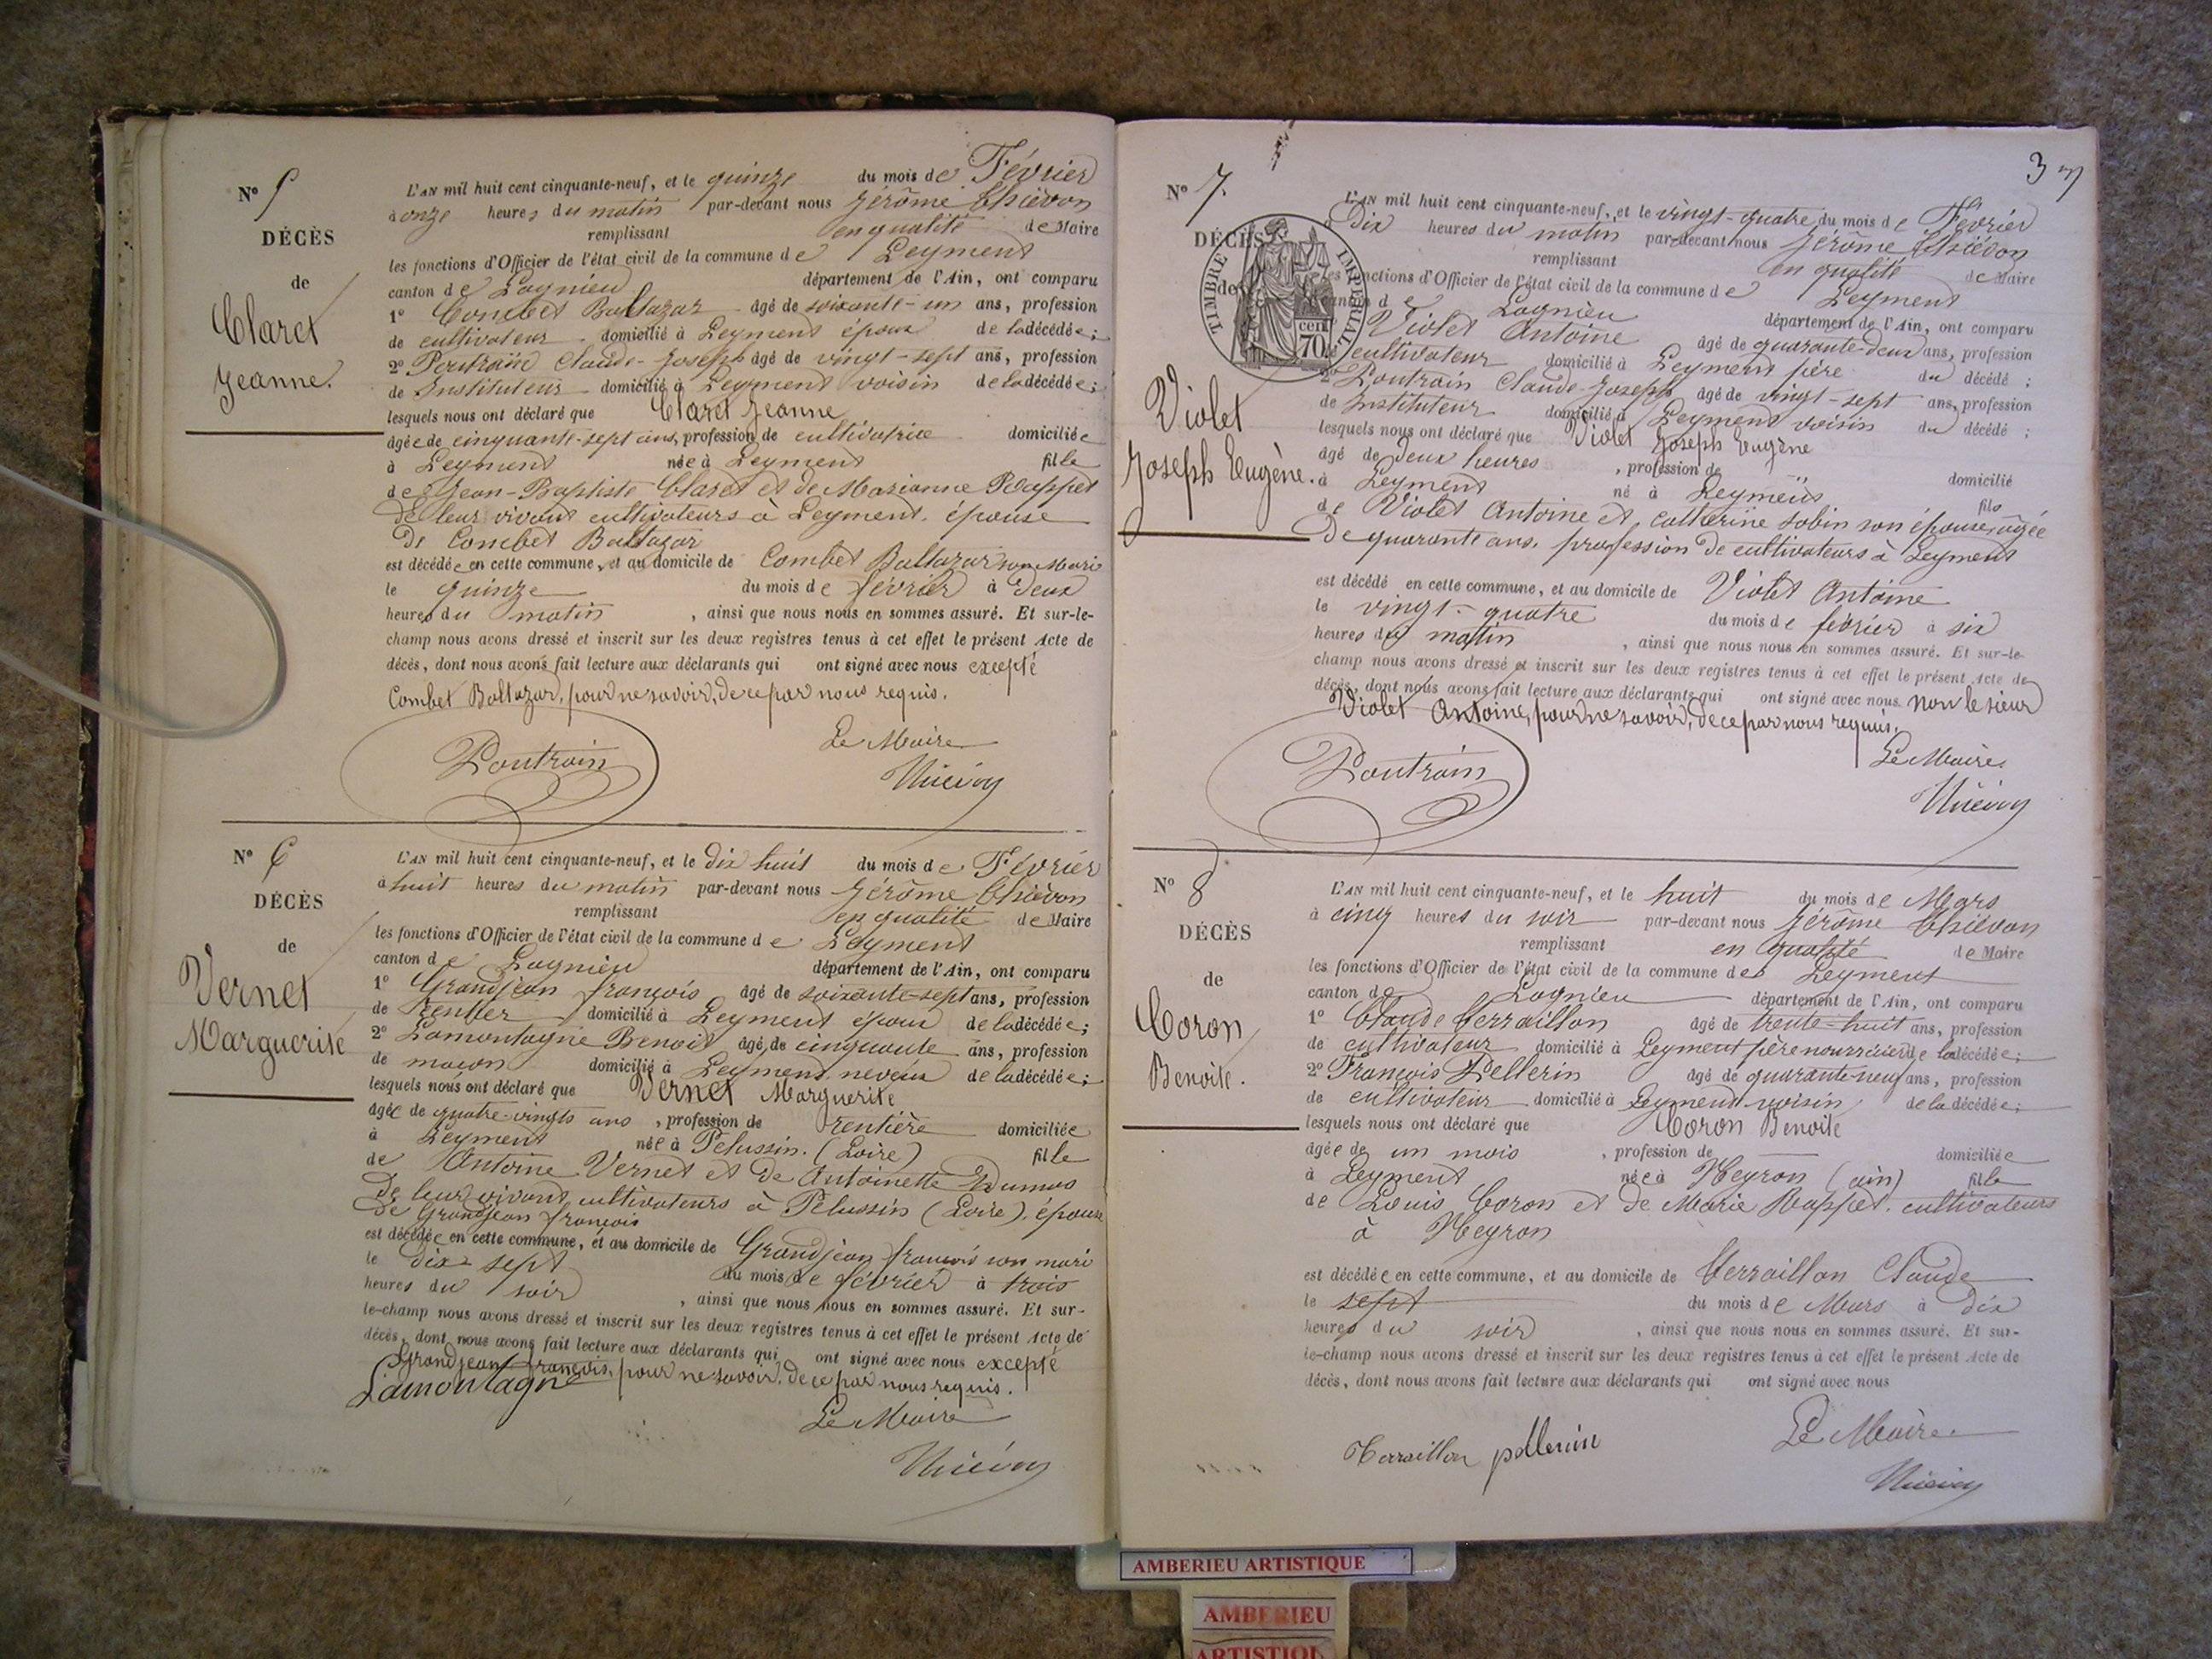 N° 5
DÉCÈS
de
Claret
Jeanne.
L'AN mil huit cent cinquante-neuf, et le quinze du mois de Février
à onze heures du matin par-devant nous Jérôme Thiévon
remplissant en qualité de Maire
les fonctions d'Officier de l'état civil de la commune de Leyment
canton de Lagnieu département de l'Ain, ont comparu
1° Combet Baltazar âgé de soixante-un ans, profession
de cultivateur domicilié à Leyment époux de la décédée;
2° Poutrain Claude-Joseph âgé de vingt-sept ans, profession
de Instituteur domicilié à Leyment voisin de la décédée;
lesquels nous ont déclaré que Claret Jeanne
âgée de cinquante-sept ans, profession de cultivatrice domiciliée
à Leyment née à Leyment fille
de Jean-Baptiste Claret et de Marianne Rappet
de leur vivant cultivateurs à Leyment. épouse
de Combet Baltazar
est décédée en cette commune, et au domicile de Combet Baltazar son Mari
le quinze du mois de février à deux
heures du matin, ainsi que nous nous en sommes assuré. Et sur-le-
champ nous avons dressé et inscrit sur les deux registres tenus à cet effet le présent Acte de
décès, dont nous avons fait lecture aux déclarants qui ont signé avec nous excepté
Combet Baltazar, pour ne savoir, de ce par nous requis.
Le Maire
Poutrain
Thiévon
N° 6
DÉCÈS
de
Vernet
Marguerite
L'AN mil huit cent cinquante-neuf, et le dix huit du mois de Février
à huit heures du matin par-devant nous Jérôme Thiévon
remplissant en qualité de Maire
les fonctions d'Officier de l'état civil de la commune de Leyment
canton de Lagnieu département de l'Ain, ont comparu
1° Grandjean françois âgé de soixante-sept ans, profession
de Rentier domicilié à Leyment époux de la décédée;
2° Lamontagne Benoit âgé de cinquante ans, profession
de maçon domicilié à Leyment neveux de la décédée;
lesquels nous ont déclaré que Vernet Marguerite
âgée de quatre-vingts ans, profession de rentière domiciliée
à Leyment née à Pelussin. (Loire) fille
de Antoine Vernet et de Antoinette Dumas
de leur vivant cultivateurs à Pelussin (Loire). épouse
de Grandjean françois
est décédée en cette commune, et au domicile de Grandjean françois son mari
le dix-sept du mois de février à trois
heures du soir, ainsi que nous nous en sommes assuré. Et sur-
le-champ nous avons dressé et inscrit sur les deux registres tenus à cet effet le présent Acte de
décès, dont nous avons fait lecture aux déclarants qui ont signé avec nous excepté
Grandjean françois, pour ne savoir, de ce par nous requis.
Lamontagne
Le Maire
Thiévon
3
N° 7.
DÉCÈS
de
Violet
Joseph Eugène.
TIMBRE IMPERIAL
70 cent
L'AN mil huit cent cinquante-neuf, et le vingt-quatre du mois de Février
à Dix heures du matin par-devant nous Jérôme Thiévon
remplissant en qualité de Maire
les fonctions d'Officier de l'état civil de la commune de Leyment
canton de Lagnieu département de l'Ain, ont comparu
Violet Antoine âgé de quarante-deux ans, profession
de cultivateur domicilié à Leyment père du décédé;
2° Poutrain Claude-Joseph âgé de vingt-sept ans, profession
de Instituteur domicilié à Leyment voisin du décédé;
lesquels nous ont déclaré que Violet Joseph Eugène
âgé de deux heures, profession de domicilié
à Leyment né à Leyment fils
de Violet Antoine et Catherine Jobin son épouse, âgée
de quarante ans, profession de cultivateurs à Leyment
est décédé en cette commune, et au domicile de Violet Antoine
le vingt-quatre du mois de février à six
heures du matin, ainsi que nous nous en sommes assuré. Et sur-le-
champ nous avons dressé et inscrit sur les deux registres tenus à cet effet le présent Acte de
décès, dont nous avons fait lecture aux déclarants qui ont signé avec nous. non le sieur
Violet Antoine, pour ne savoir, de ce par nous requis.
Le Maire
Poutrain
Thiévon
N° 8
DÉCÈS
de
Coron
Benoite.
L'AN mil huit cent cinquante-neuf, et le huit du mois de Mars
à cinq heures du soir par-devant nous Jérôme Thiévon
remplissant en qualité de Maire
les fonctions d'Officier de l'état civil de la commune de Leyment
canton de Lagnieu département de l'Ain, ont comparu
1° Claude Terraillon âgé de trente-huit ans, profession
de cultivateur domicilié à Leyment père nourricier de la décédée;
2° François Pellerin âgé de quarante-neuf ans, profession
de cultivateur domicilié à Leyment voisin de la décédée;
lesquels nous ont déclaré que Coron Benoite
âgée de un mois, profession de domiciliée
à Leyment née à Neyron (ain) fille
de Louis Coron et de Marie Rappet. cultivateurs
à Neyron
est décédée en cette commune, et au domicile de Terraillon Claude
le sept du mois de Mars à dix
heures du soir, ainsi que nous nous en sommes assuré. Et sur-
le-champ nous avons dressé et inscrit sur les deux registres tenus à cet effet le présent Acte de
décès, dont nous avons fait lecture aux déclarants qui ont signé avec nous
Le Maire
Terraillon pellerin
Thiévon
AMBERIEU ARTISTIQUE
AMBERIEU
ARTISTIQU